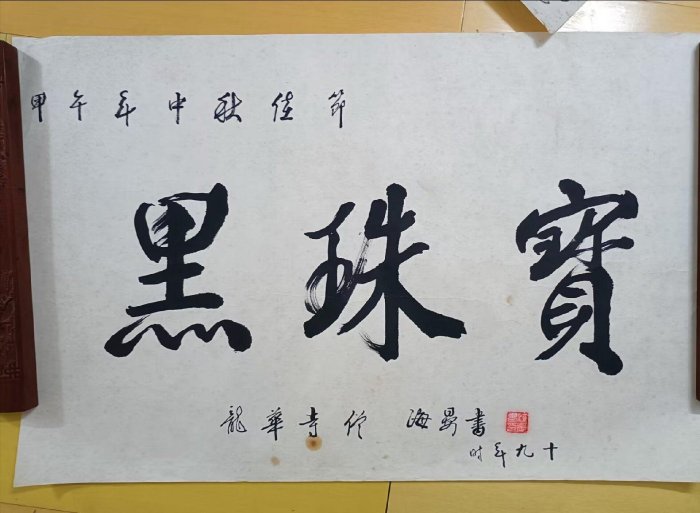 甲午年中秋佳節
黑珠寶
龍華寺僧 海昇書
時年九十